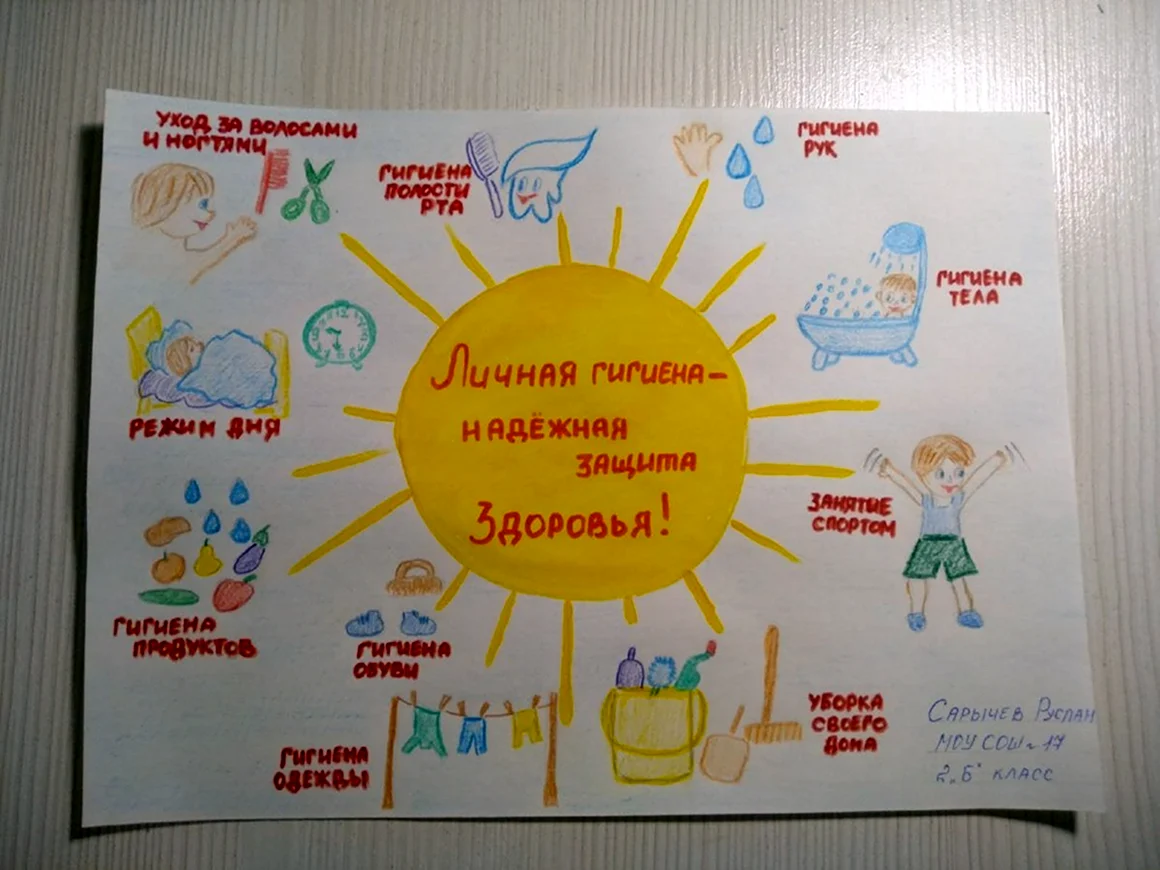 УХОД ЗА ВОЛОСАМИ
И НОГТЯМИ
ГИГИЕНА
ПОЛОСТИ
РТА
ГИГИЕНА
РУК
ГИГИЕНА
ТЕЛА
РЕЖИМ ДНЯ
ЛИЧНАЯ ГИГИЕНА–
НАДЁЖНАЯ
ЗАЩИТА
ЗДОРОВЬЯ!
ЗАНЯТИЕ
СПОРТОМ
ГИГИЕНА
ПРОДУКТОВ
ГИГИЕНА
ОБУВИ
ГИГИЕНА
ОДЕЖДЫ
УБОРКА
СВОЕГО
ДОМА
САРЫЧЕВ РУСЛАН
МОУ СОШ № 17
2 „Б" КЛАСС